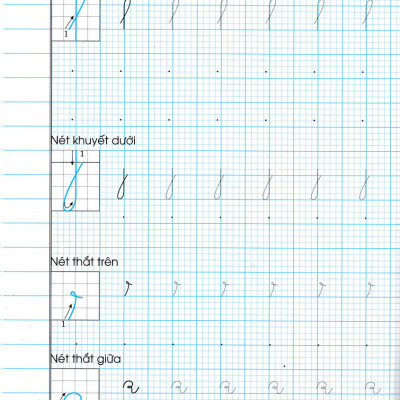 1
Nét khuyết dưới
1
Nét thắt trên
1
Nét thắt giữa